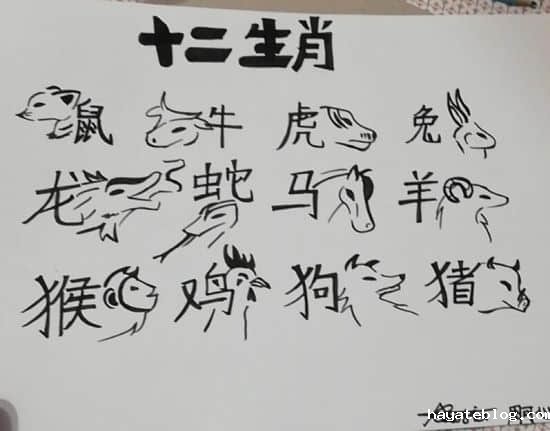 十二生肖
鼠 牛 虎 兔
龙 蛇 马 羊
猴 鸡 狗 猪
hayateblog.com